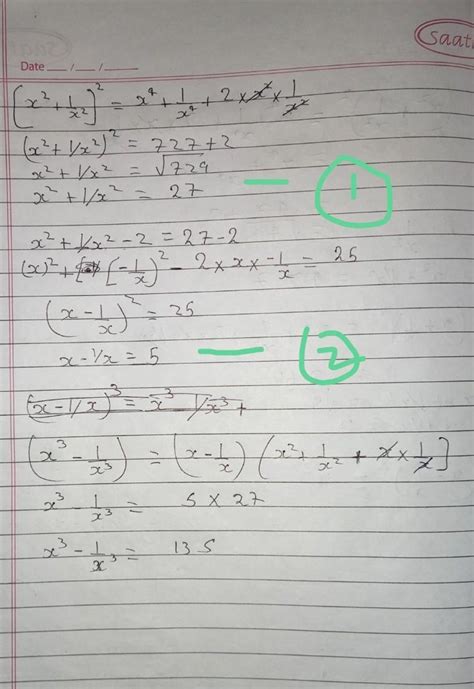 Saat
Date __/__/____
(x² + 1/x²)² = x⁴ + 1/x⁴ + 2 × x² × 1/x²
(x² + 1/x²)² = 727 + 2
x² + 1/x² = √729
x² + 1/x² = 27 — 1
x² + 1/x² - 2 = 27 - 2
(x)² + (-1/x)² - 2 × x × -1/x = 25
(x - 1/x)² = 25
x - 1/x = 5 — 2
(x - 1/x)³ = x³ - 1/x³ +
(x³ - 1/x³) = (x - 1/x) (x² + 1/x² + x × 1/x]
x³ - 1/x³ = 5 × 27
x³ - 1/x³ = 135